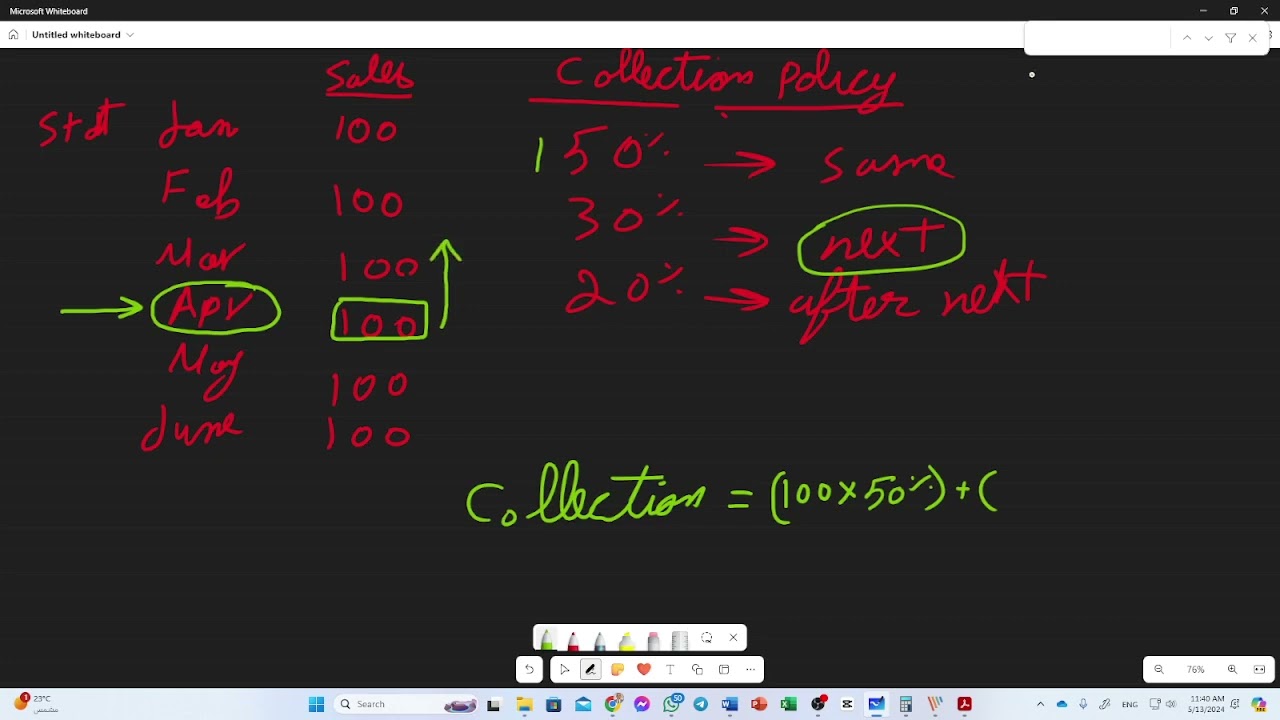 Microsoft Whiteboard
Untitled whiteboard
Sales
Collection policy
Jan 100
150% → same
Feb 100
30% → next
Mar 100
→ Apr 100
20% → after next
May 100
June 100
Collection = (100×50%) + (
76%
1
23°C
مشمس
Search
50
11:40 AM
5/13/2024